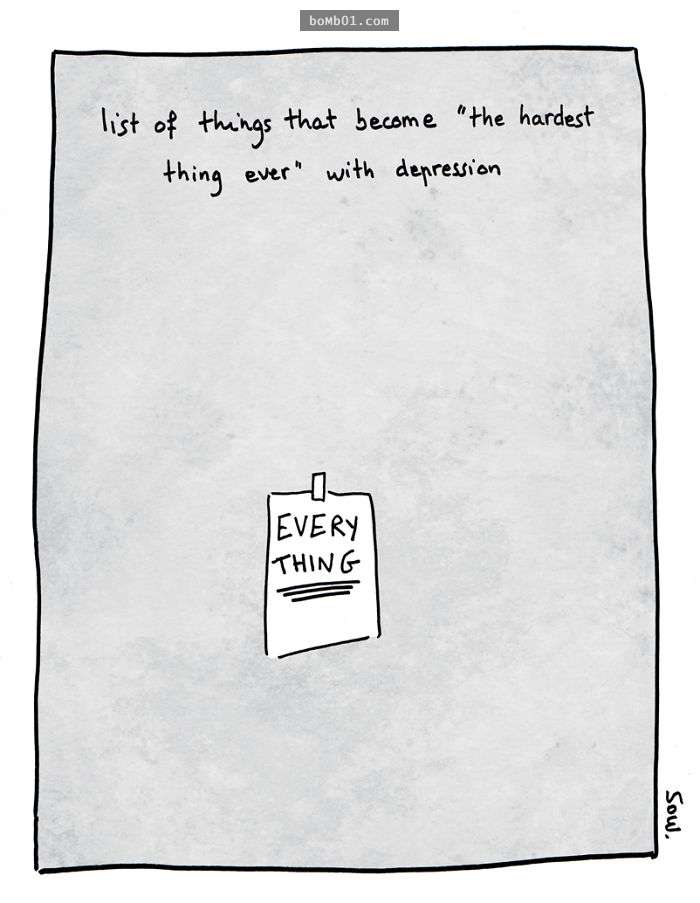 boMb01.com
list of things that become "the hardest
thing ever" with depression
EVERY
THING
Sow.